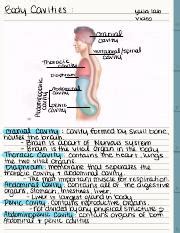 Body Cavities:
video
cranial
cavity
vertebral/spinal
cavity
Thoracic
cavity
Diaphragm
Abdominal
cavity
Pelvic
cavity
Abdominopelvic
cavity
Cranial Cavity: cavity formed by skull bone,
houses the brain.
- Brain is apart of Nervous system
- Brain is the vital organ in the body
Thoracic Cavity: contains the heart, lungs
the two vital organs.
Diaphragm: membrane that separates the
thoracic cavity + abdominal cavity.
- The most important muscle for respiration
Abdominal Cavity: contains all of the digestive
organs, stomach, intestines, liver.
- Liver is largest gland in body
Pelvic Cavity: contains reproductive organs,
not divided by any physical structures
Abdominopelvic Cavity: contains organs of both
Abdominal + pelvic cavities